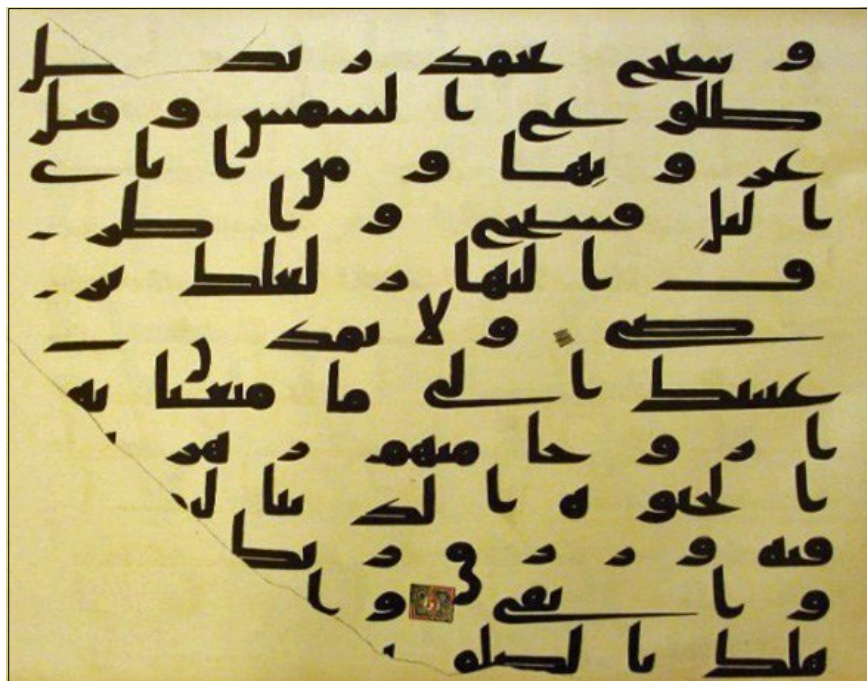 و سبح بحمد ربك قبل
طلوع الشمس و قبل
غروبها و من اناى
اليل فسبح و اطر
ف النهار لعلك تر
ضى و لا تمدن
عينيك الى ما متعنا به
ازوجا منهم زهر
الحيوه الدنيا
فيه و رزق ربك
و ابقى و ا
هلك بالصلوه